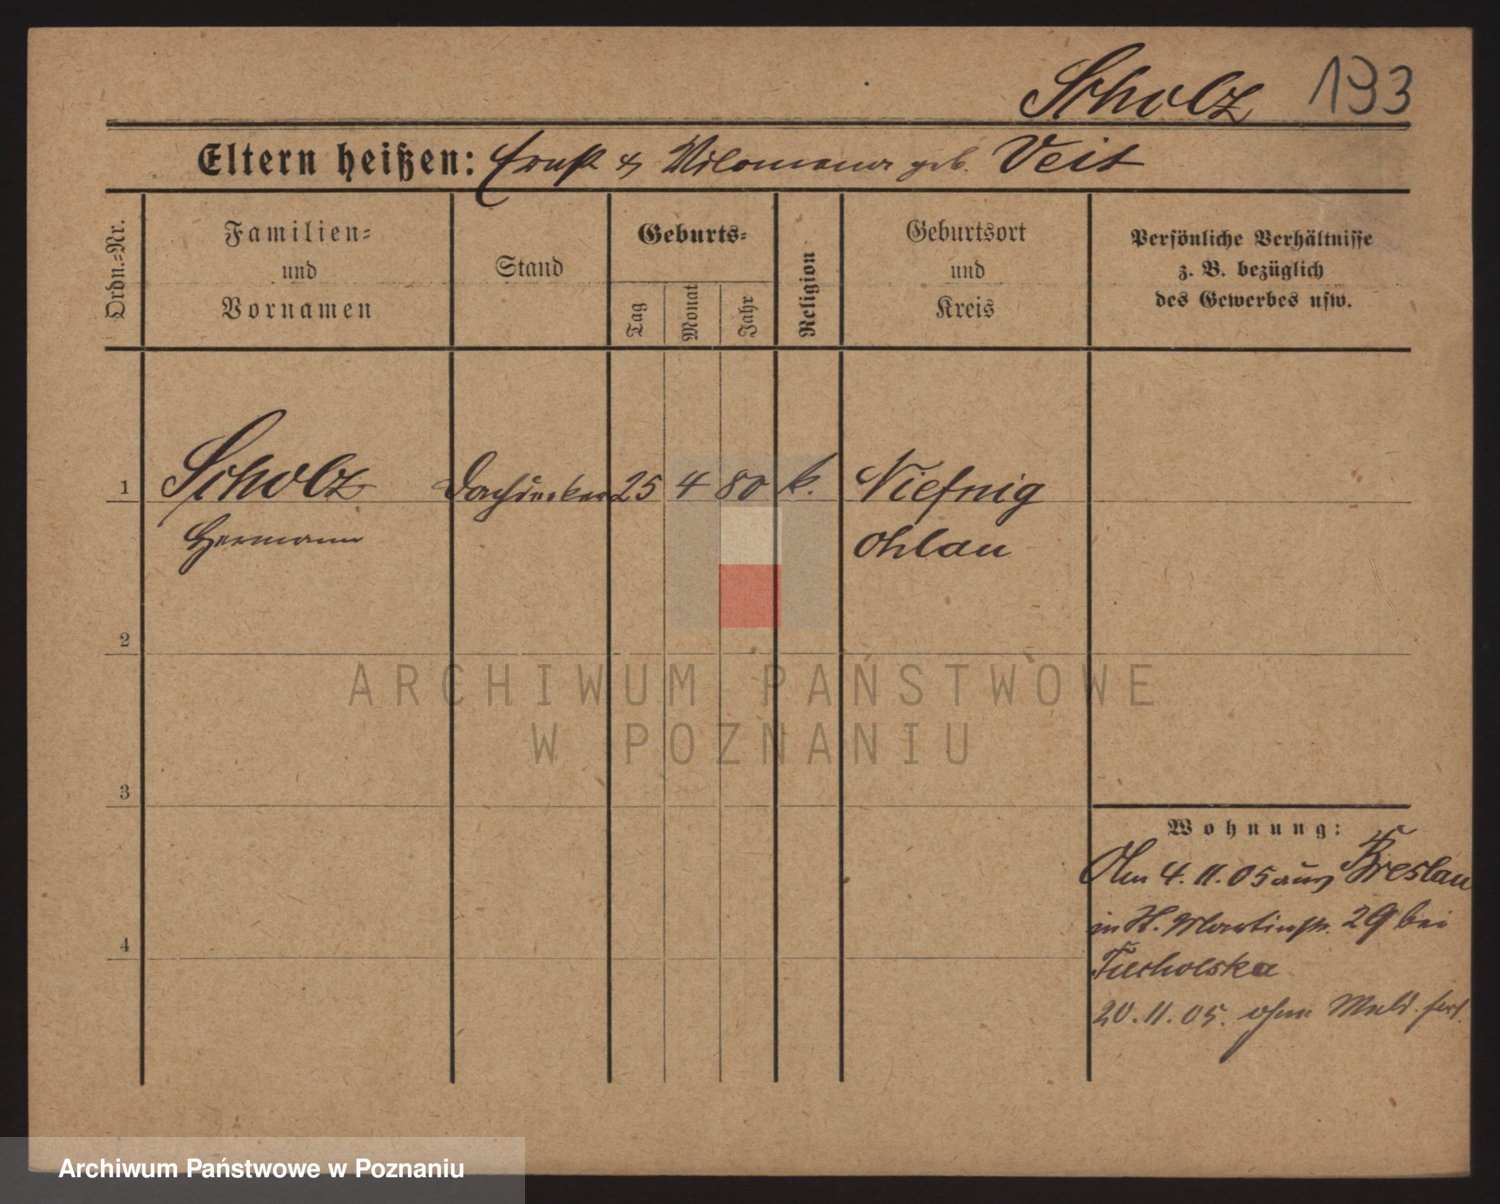 Scholz 193
Eltern heißen: Ernst & Philomena geb. Veit
Ordn.=Nr.
Familien=
und
Vornamen
Stand
Geburts=
Tag
Monat
Jahr
Religion
Geburtsort
und
Kreis
Persönliche Verhältnisse
z. B. bezüglich
des Gewerbes usw.
1 Scholz Dachdecker 25 4 80 k. Niefnig
Hermann Ohlau
2
ARCHIWUM PAŃSTWOWE
W POZNANIU
3
Wohnung:
Am 4. 11. 05 aus Breslau
in St. Martinstr. 29 bei
4
Tucholska
20. 11. 05. ohne Meld. fort.
Archiwum Państwowe w Poznaniu